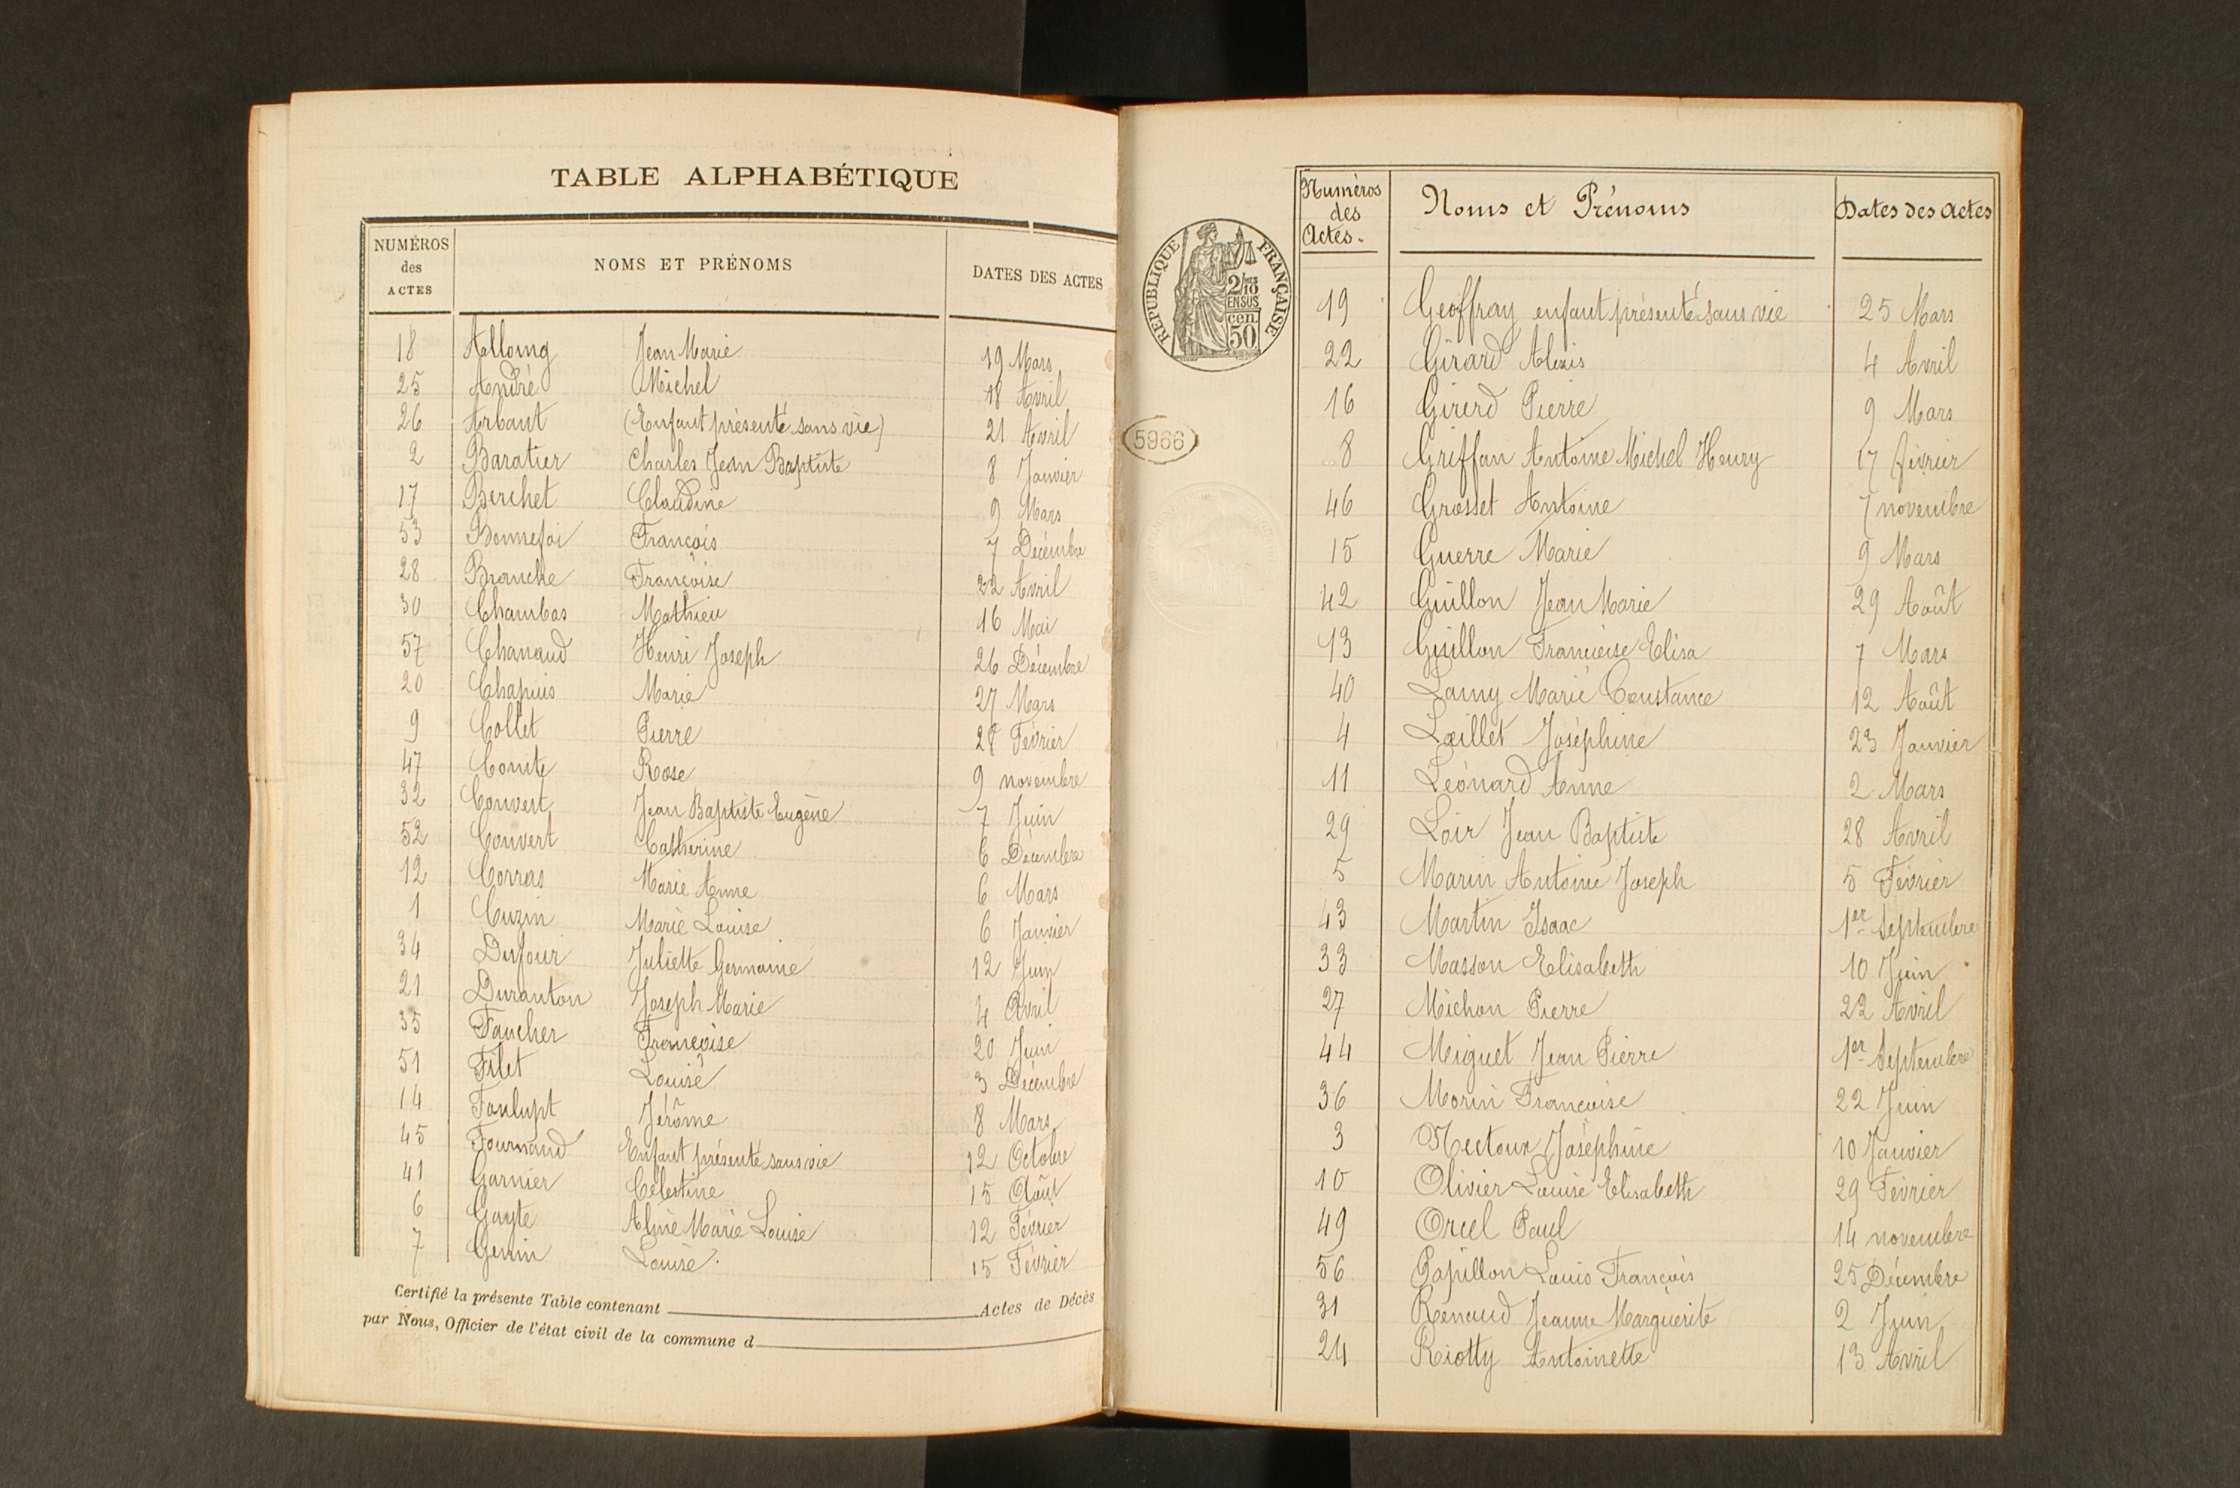 TABLE ALPHABÉTIQUE
NUMÉROS des ACTES NOMS ET PRÉNOMS DATES DES ACTES
18 Alloing Jean Marie 19 Mars
25 André Michel 18 Avril
26 Arbant (Enfant présenté sans vie) 21 Avril
2 Baratier Charles Jean Baptiste 8 Janvier
17 Berchet Claudine 9 Mars
53 Bonnefoi François 7 Décembre
28 Branche Françoise 22 Avril
30 Chambas Mathieu 16 Mai
57 Chanaud Henri Joseph 26 Décembre
20 Chapuis Marie 27 Mars
9 Collet Pierre 28 Février
47 Comte Rose 9 novembre
32 Convert Jean Baptiste Eugène 7 Juin
52 Convert Catherine 6 Décembre
12 Corras Marie Anne 6 Mars
1 Cuzin Marie Louise 6 Janvier
34 Dufour Juliette Germaine 12 Juin
21 Duranton Joseph Marie 4 Avril
35 Faucher Françoise 20 Juin
51 Filet Louise 3 Décembre
14 Foulupt Jérôme 8 Mars
45 Fournand Enfant présenté sans vie 12 Octobre
41 Garnier Célestine 15 Août
6 Gayte Aline Marie Louise 12 Février
7 Genin Louise 15 Février
Certifié la présente Table contenant Actes de Décès
par Nous, Officier de l'état civil de la commune d
RÉPUBLIQUE FRANÇAISE
2/10 EN SUS
cen. 50
5966
Numéros des Actes. Noms et Prénoms Dates des Actes
19 Geoffray enfant présenté sans vie 25 Mars
22 Girard Alexis 4 Avril
16 Girerd Pierre 9 Mars
8 Griffan Antoine Michel Henry 17 février
46 Grosset Antoine 7 novembre
15 Guerre Marie 9 Mars
42 Guillon Jean Marie 29 Août
13 Guillon Françoise Elisa 7 Mars
40 Lamy Marie Constance 12 Août
4 Lœillet Joséphine 23 Janvier
11 Léonard Anne 2 Mars
29 Loir Jean Baptiste 28 Avril
5 Marin Antoine Joseph 5 Février
43 Martin Isaac 1er Septembre
33 Masson Elisabeth 10 Juin
27 Michon Pierre 22 Avril
44 Miguet Jean Pierre 1er Septembre
36 Morin Françoise 22 Juin
3 Nectoux Joséphine 10 Janvier
10 Olivier Louise Elisabeth 29 Février
49 Orcel Paul 14 novembre
56 Papillon Louis François 25 Décembre
31 Renaud Jeanne Marguerite 2 Juin
24 Riotty Antoinette 13 Avril